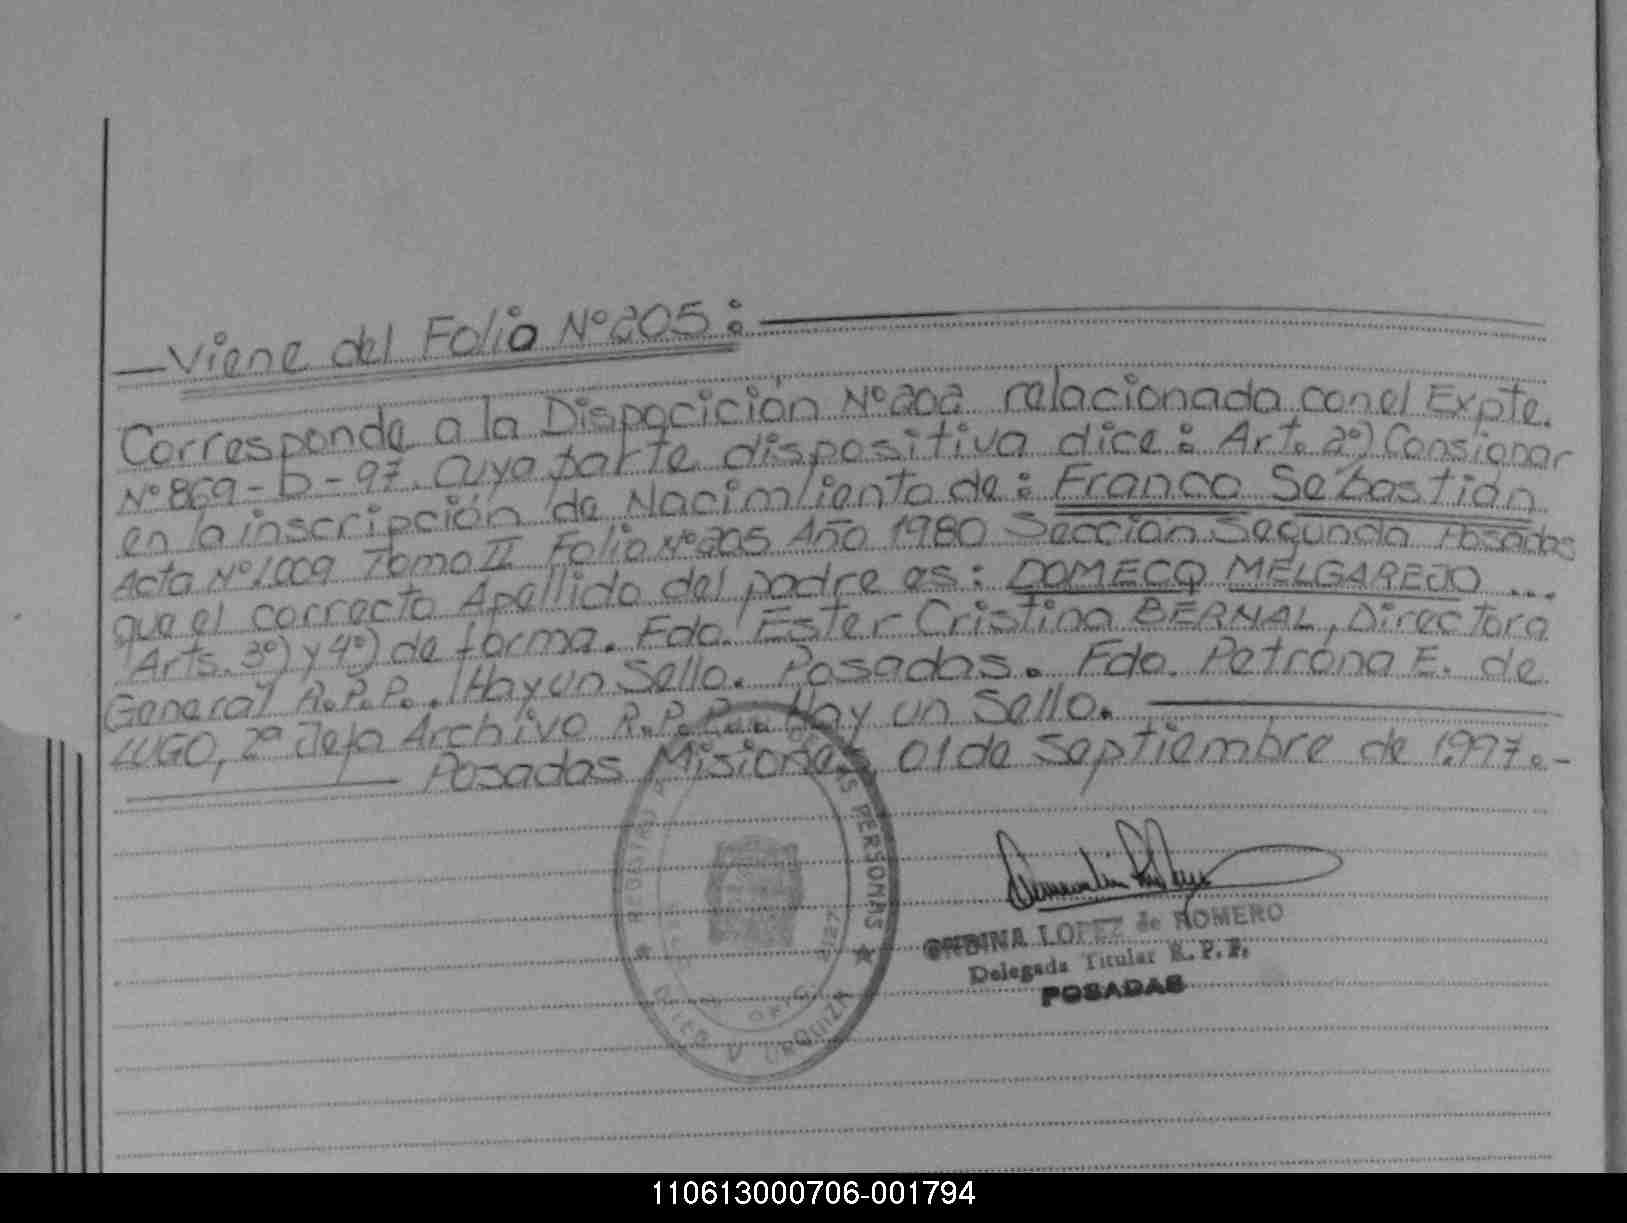 Viene del Folio Nº 205:
Corresponde a la Dispocición Nº 202 relacionada con el Expte.
Nº 869-D-97. cuya parte dispositiva dice: Art. 2º) Consignar
en la inscripción de Nacimiento de: Franco Sebastián
Acta Nº 1009 Tomo II Folio Nº 205 Año 1980 Sección Segunda Posadas
que el correcto Apellido del padre es: DOMECQ MELGAREJO ...
Arts. 3º) y 4º) de forma. Fdo. Ester Cristina BERNAL, Directora
General R.P.P.. Hay un Sello. Posadas. Fdo. Petrona E. de
LUGO, 2ª Jefa Archivo R.P.P... Hay un Sello.
Posadas Misiones, 01 de Septiembre de 1997.-
REGISTRO PERSONAS
URQUIZA
ONDINA LOPEZ de ROMERO
Delegada Titular R.P.P.
POSADAS
110613000706-001794